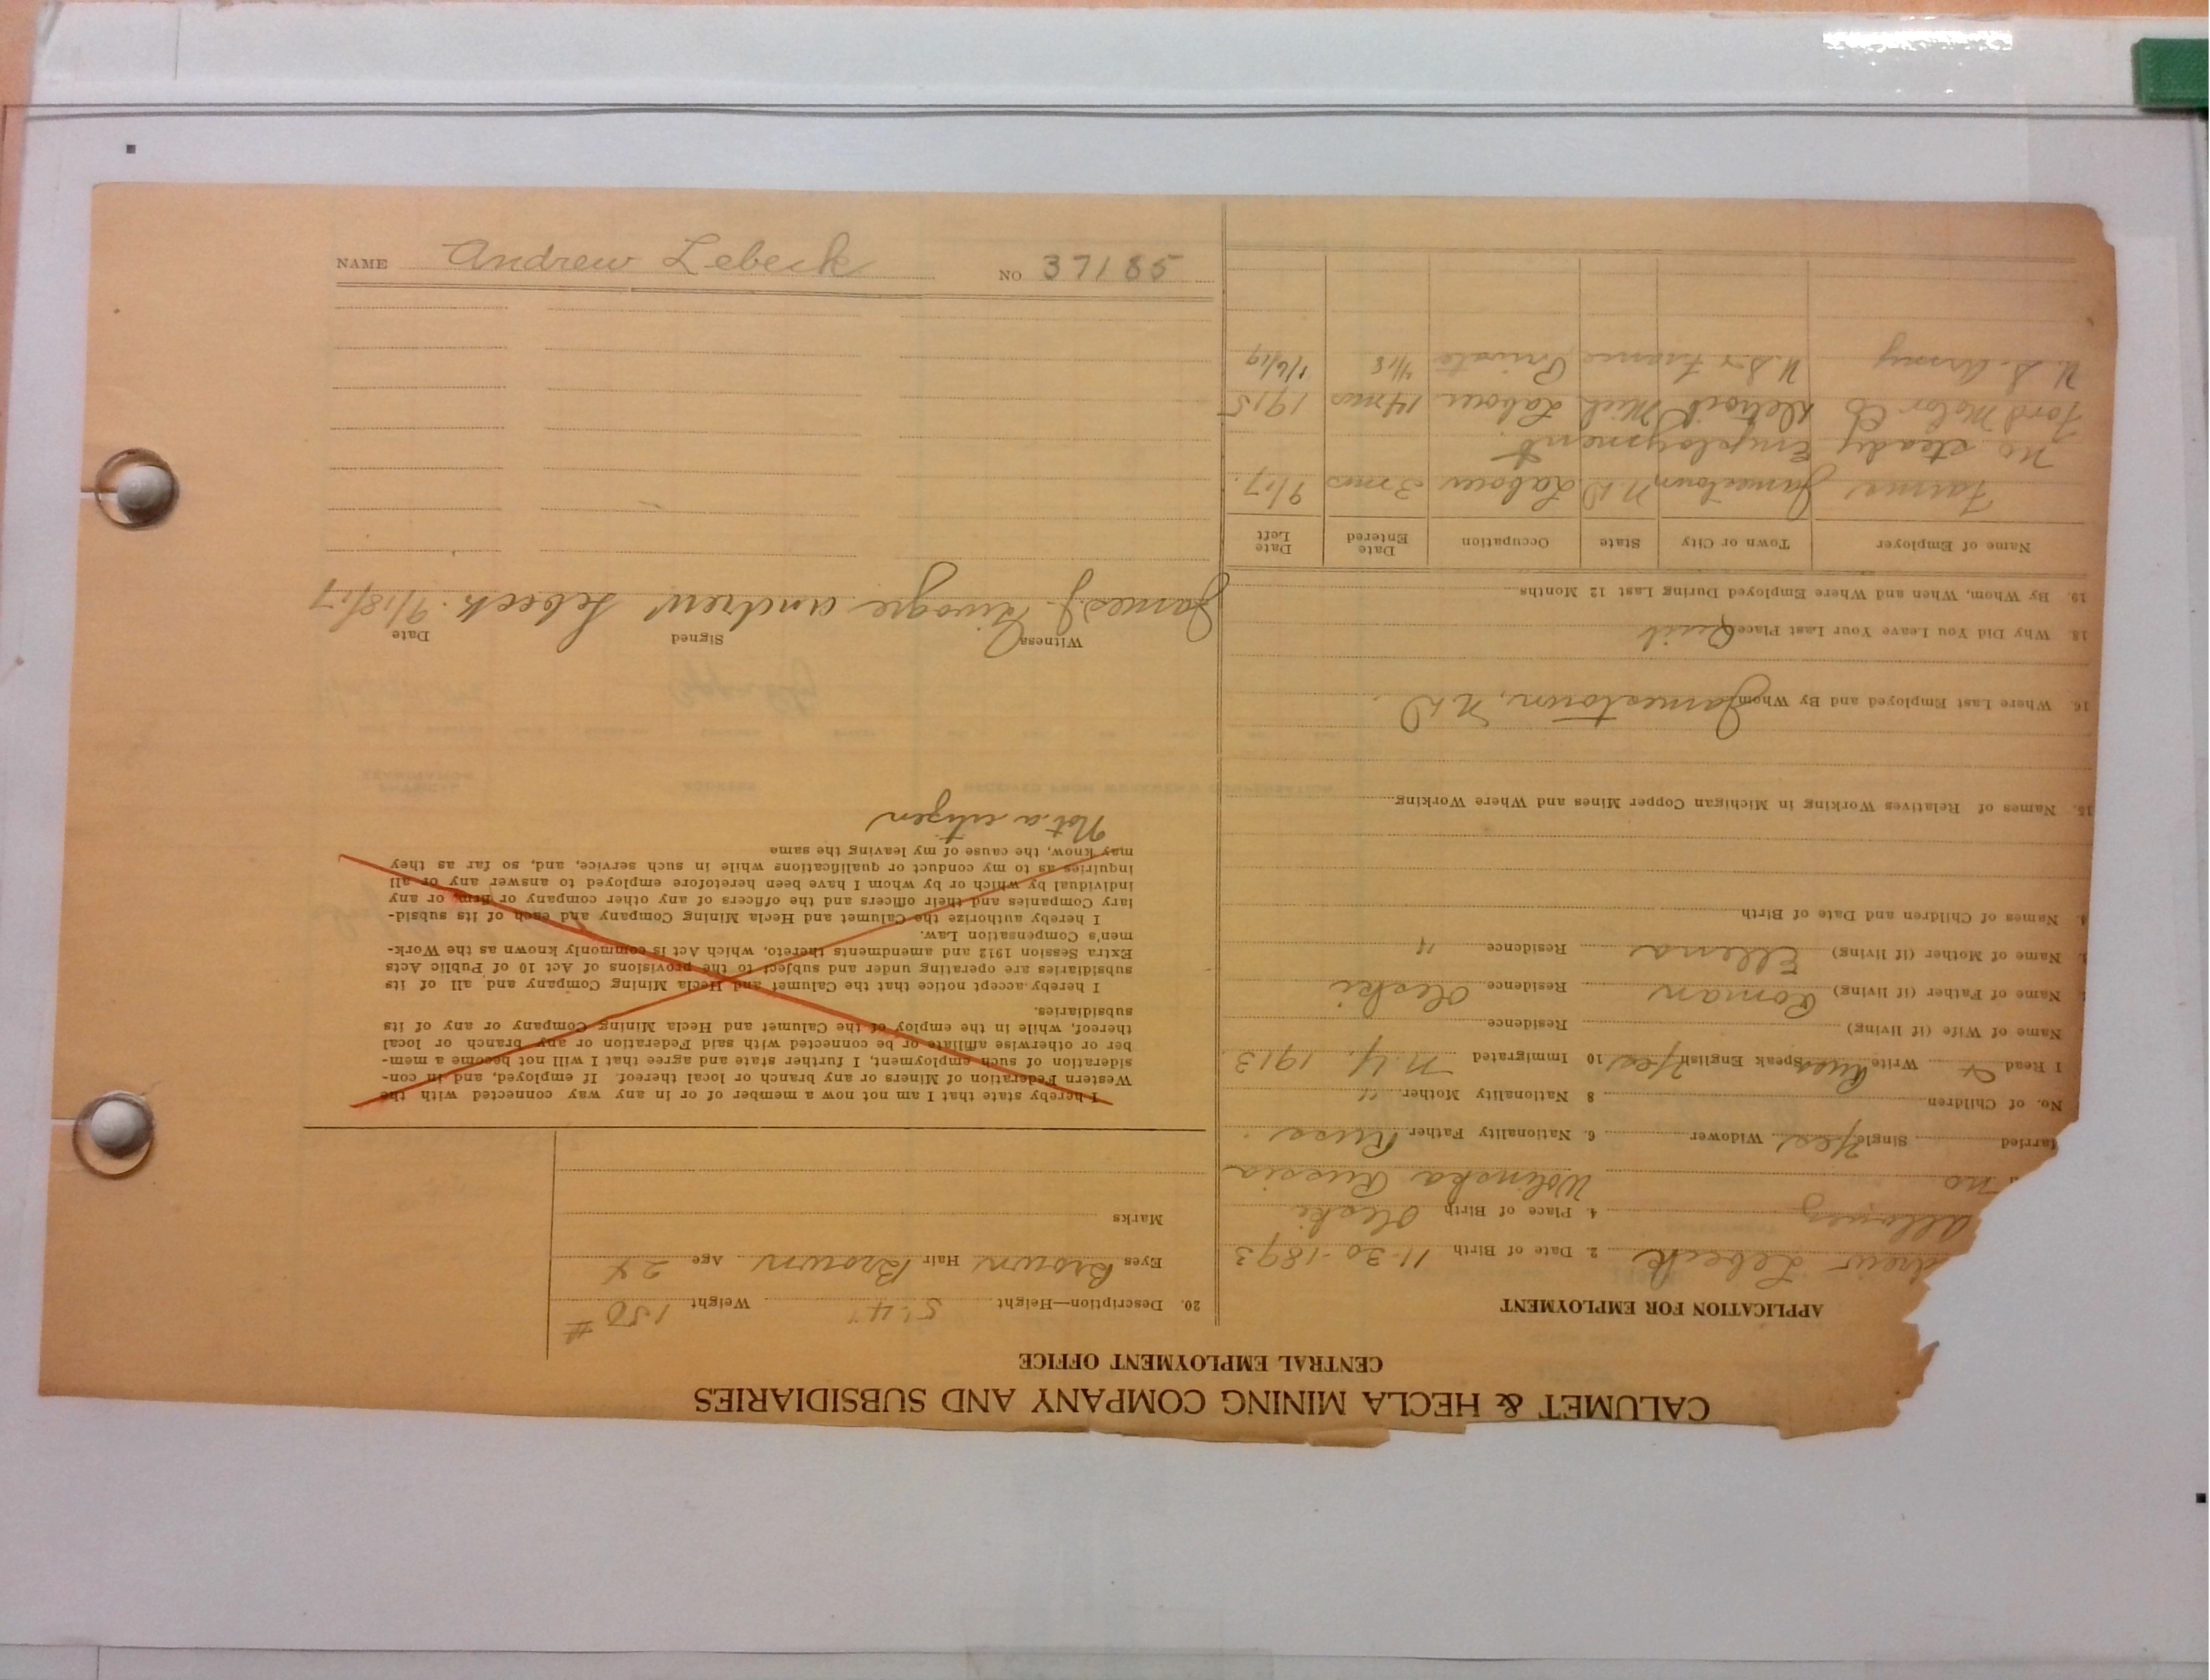 CALUMET & HECLA MINING COMPANY AND SUBSIDIARIES
CENTRAL EMPLOYMENT OFFICE
APPLICATION FOR EMPLOYMENT
drew Lebeck 2. Date of Birth 11-30-1893
Allouez 4. Place of Birth Oleski
no Wolinska Russia
arried Single Yes Widower 6. Nationality Father Russ
No. of Children 8 Nationality Mother "
I Read Write Russ Speak English Yes 10 Immigrated N.Y. 1913
Name of Wife (if living) Residence
Name of Father (if living) Roman Residence Oleski
Name of Mother (if living) Ellena Residence "
4. Names of Children and Date of Birth
15. Names of Relatives Working in Michigan Copper Mines and Where Working
16. Where Last Employed and By Whom Jamestown, N.D
18. Why Did You Leave Your Last Place Quit
19. By Whom, When and Where Employed During Last 12 Months
Name of Employer Town or City State Occupation Date Entered Date Left
Farmer Jamestown N.D Laborer 3 mos 9/17.
No steady Employment.
Ford Motor Co Detroit Mich Laborer 14 mos 1915
U.S. Army U.S. & France Private 4/18 1/6/19
20. Description—Height 5'4" Weight 150 #
Eyes Brown Hair Brown Age 24
Marks
I hereby state that I am not now a member of or in any way connected with the
Western Federation of Miners or any branch or local thereof. If employed, and in con-
sideration of such employment, I further state and agree that I will not become a mem-
ber or otherwise affiliate or be connected with said Federation or any branch or local
thereof, while in the employ of the Calumet and Hecla Mining Company or any of its
subsidiaries.
I hereby accept notice that the Calumet and Hecla Mining Company and all of its
subsidiaries are operating under and subject to the provisions of Act 10 of Public Acts
Extra Session 1912 and amendments thereto, which Act is commonly known as the Work-
men's Compensation Law.
I hereby authorize the Calumet and Hecla Mining Company and each of its subsid-
iary Companies and their officers and the officers of any other company or firm, or any
individual by which or by whom I have been heretofore employed to answer any or all
inquiries as to my conduct or qualifications while in such service, and, so far as they
may know, the cause of my leaving the same
Not a citizen
Witness Signed Date
James J. Andrew Lebeck. 9/18/17
NAME Andrew Lebeck NO 37185